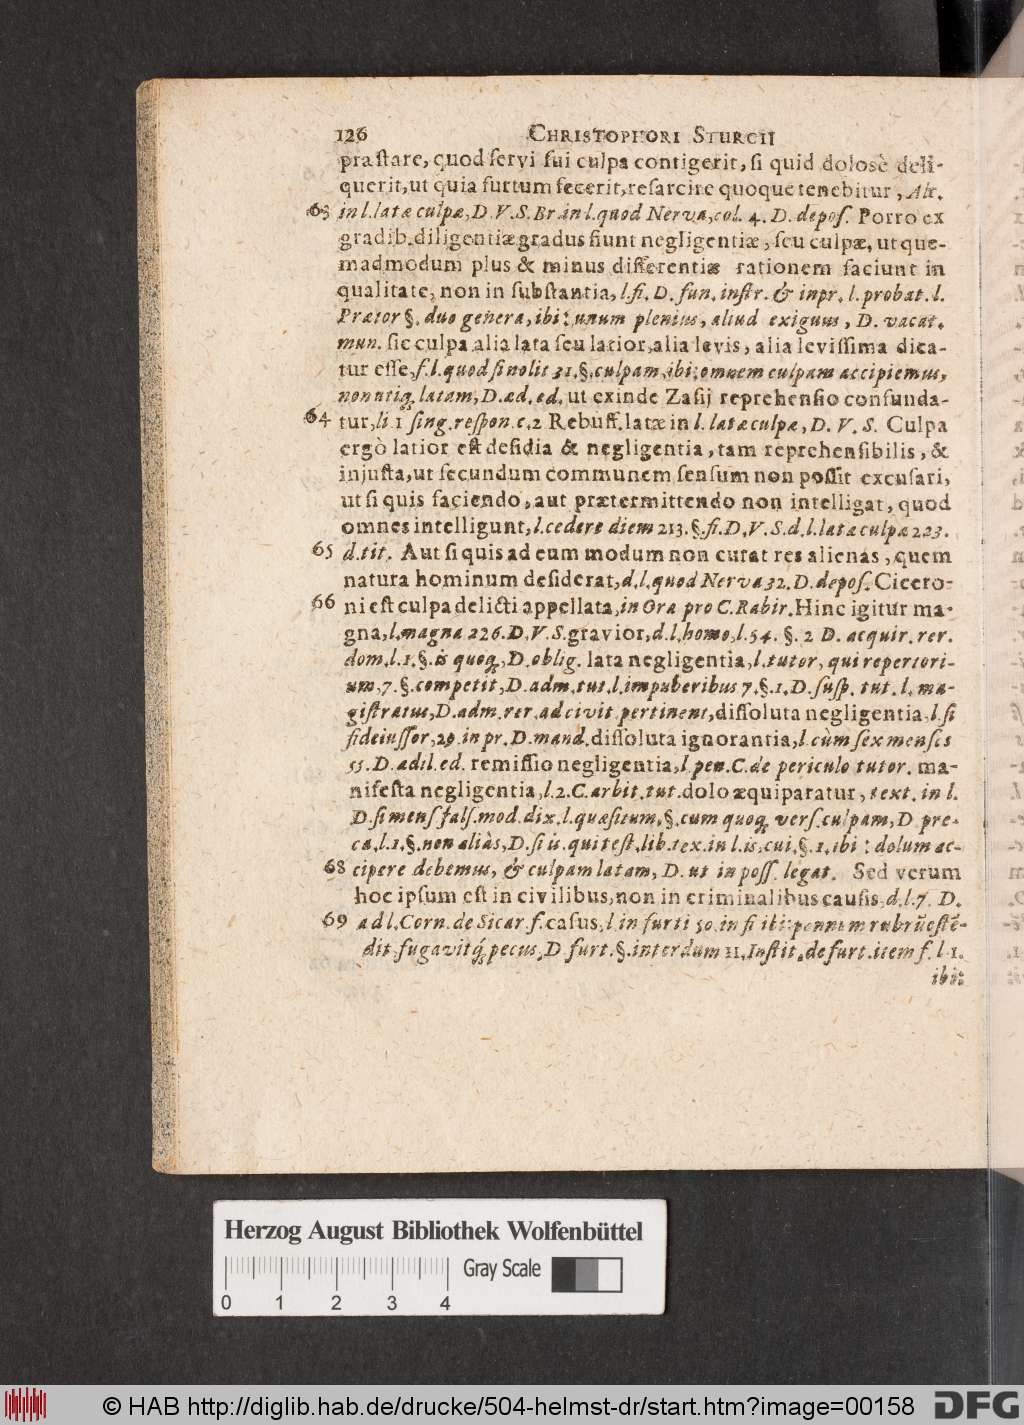 126 CHRISTOPHORI STURCII
præstare, quod servi sui culpa contigerit, si quid dolosè deli-
querit, ut quia furtum fecerit, resarcire quoque tenebitur, Alc.
63 in l. latæ culpæ, D. V. S. Br. in l. quod Nerva, col. 4. D. depos. Porro ex
gradib. diligentiæ gradus fiunt negligentiæ, seu culpæ, ut que-
madmodum plus & minus differentiæ rationem faciunt in
qualitate, non in substantia, l. fi. D. fun. instr. & inpr. l. probat. l.
Prætor §. duo genera, ibi: unum plenius, aliud exiguus, D. vacat.
mun. sic culpa alia lata seu latior, alia levis, alia levissima dica-
tur esse, f. l. quod si nolit 31. §. culpam, ibi: omnem culpam accipiemus,
non utiq; latam, D. æd. ed. ut exinde Zasij reprehensio confunda-
64 tur, li 1 sing. respon. c. 2 Rebuff. latæ in l. lata culpa, D. V. S. Culpa
ergò latior est desidia & negligentia, tam reprehensibilis, &
injusta, ut secundum communem sensum non possit excusari,
ut si quis faciendo, aut prætermittendo non intelligat, quod
omnes intelligunt, l. cedere diem 213. §. fi. D. V. S. d. l. lata culpa 223.
65 d. tit. Aut si quis ad eum modum non curat res alienas, quem
natura hominum desiderat, d. l. quod Nerva 32. D. depos. Cicero-
66 ni est culpa delicti appellata, in Ora pro C. Rabir. Hinc igitur ma-
gna, l. magna 226. D. V. S. gravior, d. l. homo, l. 54. §. 2 D. acquir. rer.
dom. l. 1. §. is quoq; D. oblig. lata negligentia, l. tutor, qui repertori-
um, 7. §. competit, D. adm. tut. l. impuberibus 7. §. 1. D. susp. tut. l. ma-
gistratus, D. adm. rer. ad civit pertinent, dissoluta negligentia, l. si
fideiussor, 29. in pr. D. mand. dissoluta ignorantia, l. cùm sex menses
55. D. ædil. ed. remissio negligentia, l. pen. C. de periculo tutor. ma-
nifesta negligentia, l. 2. C. arbit. tut. dolo æquiparatur, text. in l.
D. si mens fals. mod. dix. l. quæsitum, §. cum quoq; vers. culpam, D pre-
ca. l. 1. §. non aliàs, D. si is. qui test. lib. tex. in l. is, cui, §. 1. ibi: dolum ac-
68 cipere debemus, & culpam latam, D. ut in poss. legat. Sed verum
hoc ipsum est in civilibus, non in criminalibus causis, d. l. 7. D.
69 ad l. Corn. de Sicar. f. casus, l in furti 50. in fi ibi: pannum rubrũ estẽ-
dit, fugavitq́; pecus, D furt. §. interdum 11. Instit. de furt. item f. l. 1.
ibi:
Herzog August Bibliothek Wolfenbüttel
Gray Scale
0 1 2 3 4
© HAB http://diglib.hab.de/drucke/504-helmst-dr/start.htm?image=00158
DFG